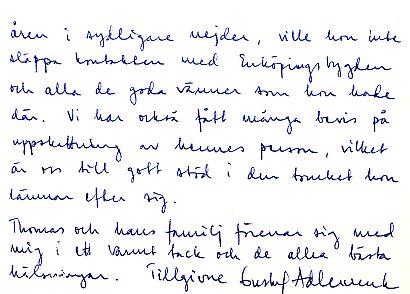 åren i sydligare nejder, ville hon inte
släppa kontakten med Enköpingsbygden
och alla de goda vänner som hon hade
där. Vi har också fått många bevis på
uppskattning av hennes person, vilket
är oss till gott stöd i den tomhet hon
lämnar efter sig.
Thomas och hans familj förenar sig med
mig i ett varmt tack och de allra bästa
hälsningar. Tillgivne Gustaf Adlercreutz